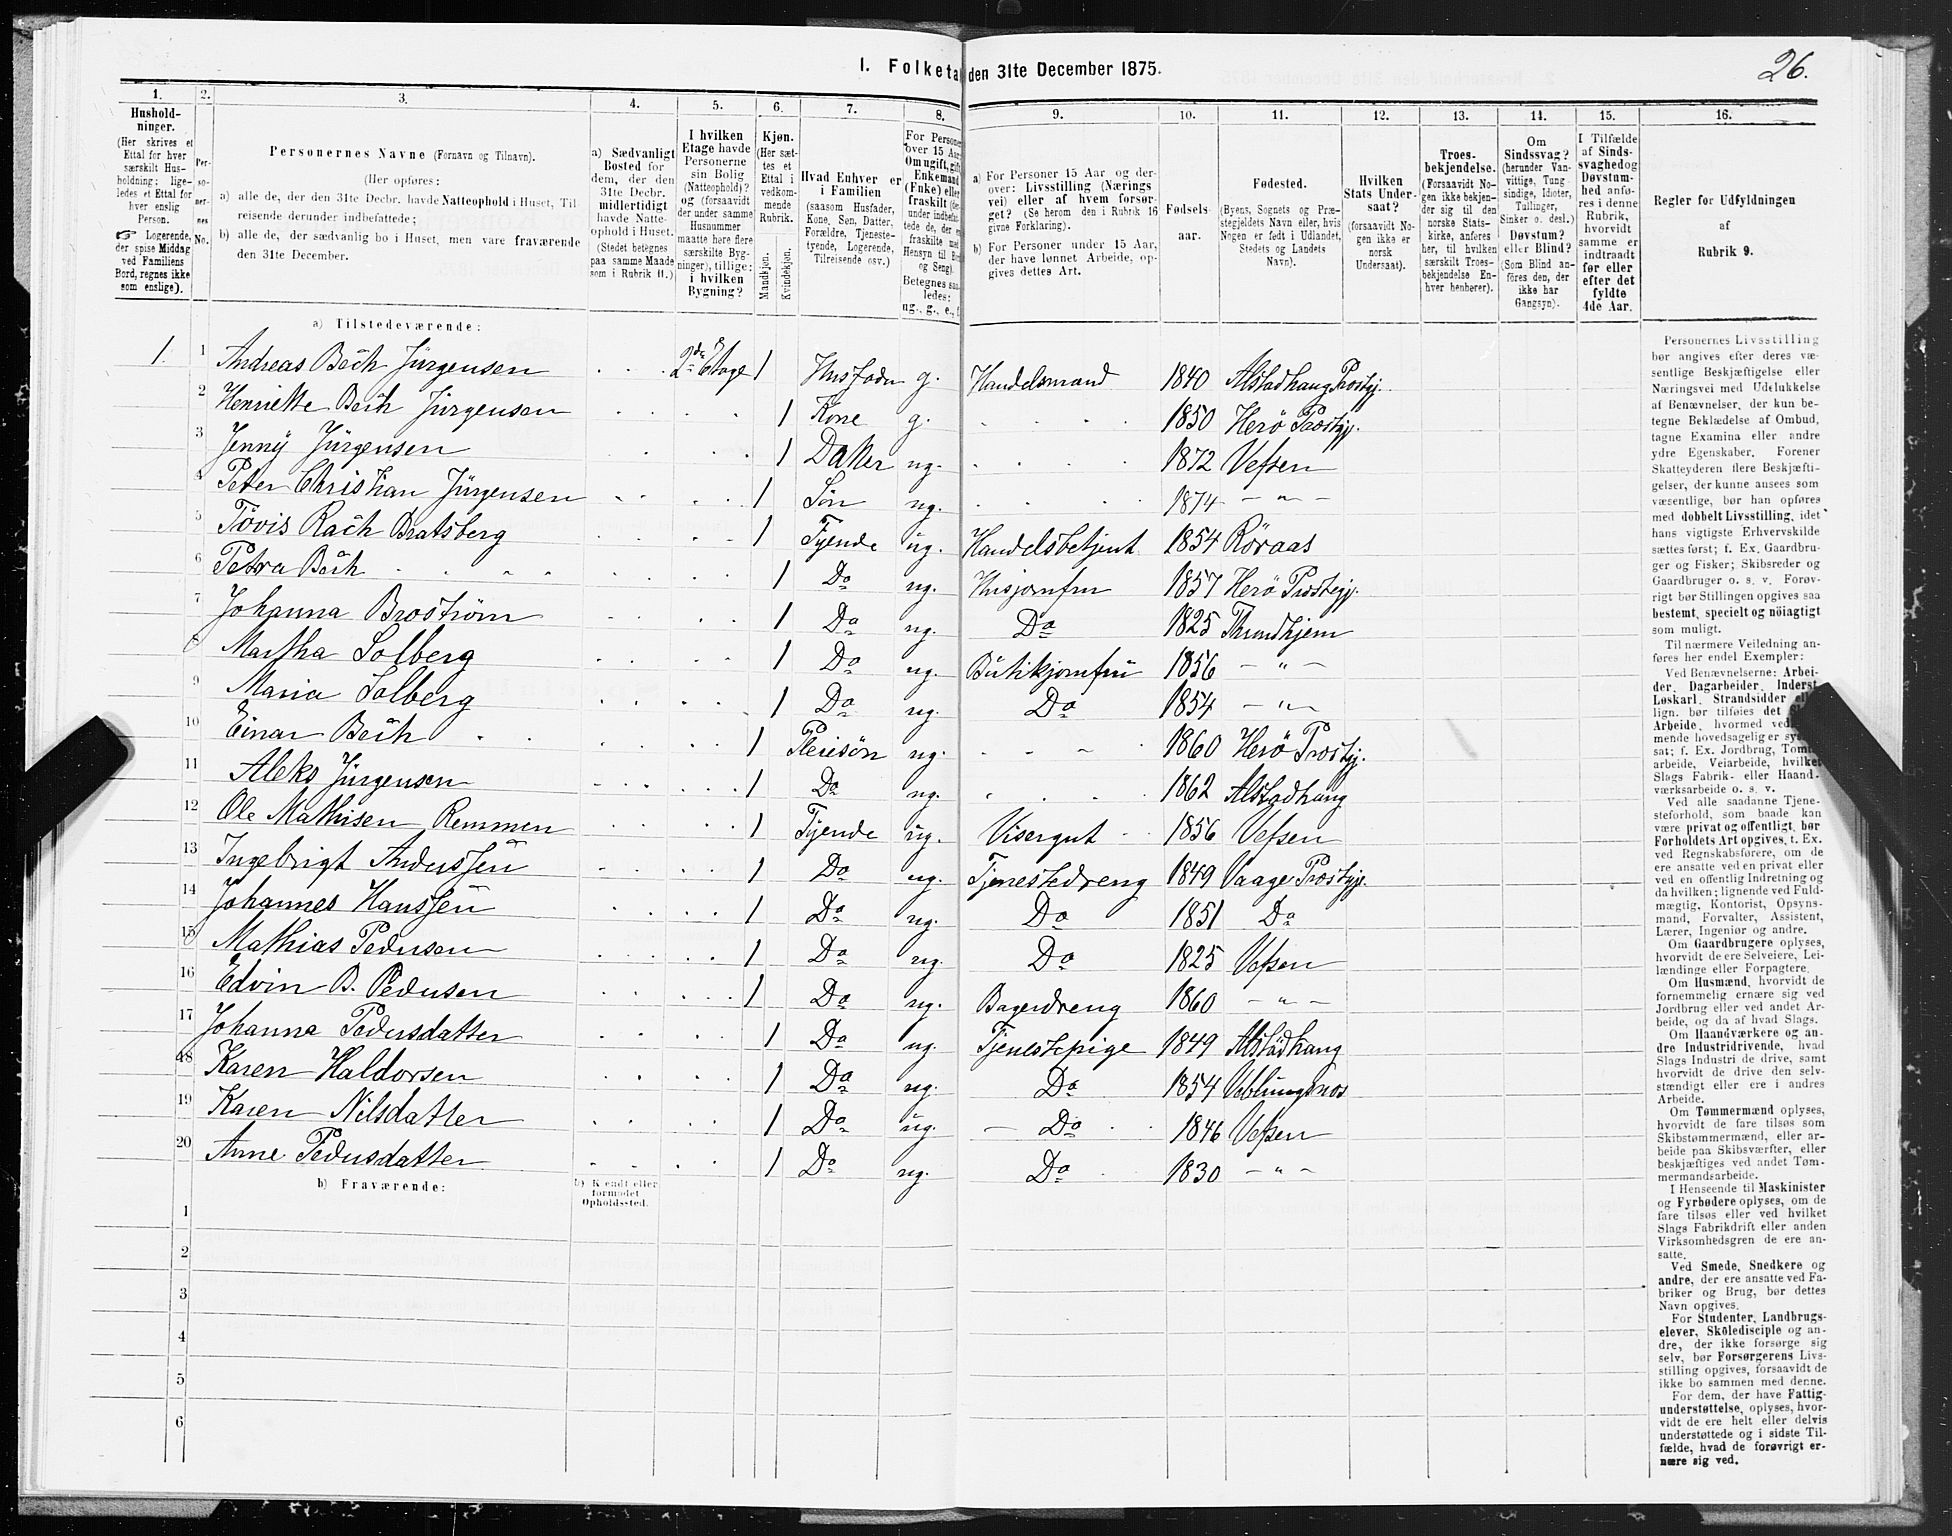 26.
I. Folketa den 31te December 1875.
1. 2. 3. 4. 5. 6. 7. 8. 9. 10. 11. 12. 13. 14. 15. 16.
Hushold-
ninger.
(Her skrives et
Ettal for hver
særskilt Hus-
holdning; lige-
ledes et Ettal for
hver enslig
Person.
☞ Logerende,
der spise Middag
ved Familiens
Bord, regnes ikke
som enslige).
Per-
so-
ner-
nes
No.
Personernes Navne (Fornavn og Tilnavn).
(Her opføres:
a) alle de, der den 31te Decbr. havde Natteophold i Huset, Til-
reisende derunder indbefattede;
b) alle de, der sædvanlig bo i Huset, men vare fraværende
den 31te December.
a) Sædvanligt
Bosted for
dem, der den
31te Decbr.
midlertidigt
havde Natte-
ophold i Huset.
(Stedet betegnes
paa samme Maade
som i Rubrik 11.)
I hvilken
Etage havde
Personerne
sin Bolig
(Natteophold)?
og (forsaavidt
der under samme
Husnummer
maatte høre flere
særskilte Byg-
ninger), tillige:
i hvilken
Bygning?
Kjøn.
(Her sæt-
tes et
Ettal i
vedkom-
mende
Rubrik.
Mandkjøn.
Kvindekjøn.
Hvad Enhver er
i Familien
(saasom Husfader,
Kone, Søn, Datter,
Forældre, Tjeneste-
tyende, Logerende,
Tilreisende osv.)
For Persone
over 15 Aar
Om ugift, gift
Enkemand
(Enke) eller
fraskilt
under indbefat-
tede de, der
fraskilte med
Hensyn til Bo
og Seng).
Betegnes saa-
ledes:
ug., g., e., f
a) For Personer 15 Aar og der-
over: Livsstilling (Nærings
vei) eller af hvem forsør-
get? (Se herom den i Rubrik 16
givne Forklaring).
b) For Personer under 15 Aar,
der have lønnet Arbeide, op-
gives dettes Art.
Fødsels-
aar.
Fødested.
(Byens, Sognets og Præ-
stegjeldets Navn eller, hvis
Nogen er født i Udlandet,
Stedets og Landets
Navn).
Hvilken
Stats Under-
saat?
(forsaavidt No-
gen ikke er
norsk
Undersaat).
Troes-
bekjendelse.
(Forsaavidt No-
gen ikke bekjen-
der sig til den
norske Stats-
kirke, anføres
her, til hvilken
særskilt Troes-
bekjendelse En-
hver henhører).
Om
Sindssvag?
(herunder Van-
vittige, Tung
sindige, Idioter,
Tullinger,
Sinker o. desl.)
Døvstum?
eller Blind?
(Som Blind an-
føres den, der
ikke har
Gangsyn).
I Tilfælde
af Sinds-
svaghed og
Døvstum-
hed anfø-
res i denne
Rubrik,
hvorvidt
samme er
indtraadt
før eller
efter det
fyldte
4de Aar.
Regler for Udfyldningen
af
Rubrik 9.
a) Tilstedeværende:
1. 1 Andreas Bech Jürgensen 2den Etage 1 Husfader g. Handelsmand 1840 Alstadhaug Prostgj.
2 Henriette Bech Jürgensen 1 Kone g. 1850 Herö Prestgj.
3 Jenny Jürgensen 1 Datter ug. 1872 Vefsen
4 Peter Christian Jürgensen 1 Sön ug. 1874 — " —
5 Tovis Rach Bratsberg 1 Tyende ug. Handelsbetjent 1854 Röraas
6 Petra Bech 1 Do ug. Husjomfru 1857 Herö Prestegj.
7 Johanna Broström 1 Do ug. Do 1825 Throndhjem
8 Martha Solberg 1 Do ug. Butikjomfru 1856 — " —
9 Maria Solberg 1 Do ug. Do 1854 — " —
10 Einar Bech 1 Pleiesøn ug. 1860 Herö Prestgj.
11 Aleks Jürgensen 1 Do ug. 1862 Alstadhaug
12 Ole Mathisen Remmen 1 Tyende ug. Visergut 1856 Vefsen
13 Ingebrigt Anderssen 1 Do ug. Tjenestedreng 1849 Vaage Prestgj.
14 Johannes Hanssen 1 Do ug. Do 1851 Do
15 Mathias Pedersen 1 Do ug. Do 1825 Vefsen
16 Edvin B. Pedersen 1 Do ug. Bagerdreng 1860 — " —
17 Johanna Pedersdatter 1 Do ug. Tjenestepige 1849 Alstadhaug
18 Karen Haldorsen 1 Do ug. Do 1854 Veblungsnes
19 Karen Nilsdatter 1 Do ug. — Do 1846 Vefsen
20 Anne Pedersdatter 1 Do ug. Do 1830 — " —
b) Fraværende:
b) Kjendt eller
formodet
Opholdssted.
1
2
3
4
5
6
Personernes Livsstilling
bør angives efter deres væ-
sentlige Beskjæftigelse eller
Næringsvei med Udelukkelse
af Benævnelser, der kun be-
tegne Beklædelse af Ombud,
tagne Examina eller andre
ydre Egenskaber. Forener
Skatteyderen flere Beskjæfti-
gelser, der kunne ansees som
væsentlige, bør han opføres
med dobbelt Livsstilling, idet
hans vigtigste Erhvervskilde
sættes først; f. Ex. Gaardbru-
ger og Fisker; Skibsreder og
Gaardbruger o. s. v. Forøv-
rigt bør Stillingen opgives saa
bestemt, specielt og nöiagtigt
som muligt.
Til nærmere Veiledning an-
føres her endel Exempler:
Ved Benævnelserne: Arbei-
der, Dagarbeider, Inderst,
Løskarl, Strandsidder
lign. bør tilføies det
Arbeide, hvormed ved
mende hovedsagelig er sys
sat; f. Ex. Jordbrug, Tøm
arbeide, Veiarbeide, hvilket
Slags Fabrik- eller Haand-
værksarbeide o. s. v.
Ved alle saadanne Tjene-
steforhold, som baade kan
være privat og offentligt, bør
Forholdets Art opgives, t. Ex.
ved Regnskabsførere, om de
ere ansatte ved en privat eller
ved en offentlig Indretning og
da hvilken; lignende ved Fuld-
mægtig, Kontorist, Opsyns-
mand, Forvalter, Assistent,
Lærer, Ingeniør og andre.
Om Gaardbrugere oplyses,
hvorvidt de ere Selveiere, Lei-
lændinge eller Forpagtere.
Om Husmænd, hvorvidt de
fornemmelig ernære sig ved
Jordbrug eller ved andet Ar-
beide, og da af hvad Slags.
Om Haandværkere og an-
dre Industridrivende, hvad
Slags Industri de drive, samt
hvorvidt de drive den selv-
stændigt eller ere i andres
Arbeide.
Om Tømmermænd oplyses,
hvorvidt de fare tilsøs som
Skibstømmermænd, eller ar-
beide paa Skibsværfter, eller
beskjæftiges ved andet Tøm-
mermandsarbeide.
I Henseende til Maskinister
og Fyrbødere oplyses, om de
fare tilsøs eller ved hvilket
Slags Fabrikdrift eller anden
Virksomhedsgren de ere an-
satte.
Ved Smede, Snedkere og
andre, der ere ansatte ved Fa-
briker og Brug, bør dettes
Navn opgives.
For Studenter, Landbrugs-
elever, Skoledisciple og an-
dre, der ikke forsørge sig
selv, bør Forsørgerens Livs-
stilling opgives, forsaavidt de
ikke bo sammen med denne.
For dem, der have Fattig-
understøttelse, oplyses, hvor-
vidt de ere helt eller delvis
understøttede og i sidste Til-
fælde, hvad de forøvrigt er-
nære sig ved.